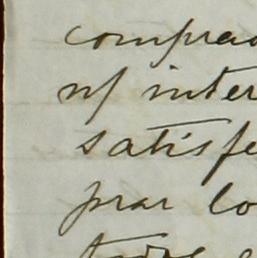 comprad
n/ inter
satisfe
prar lo